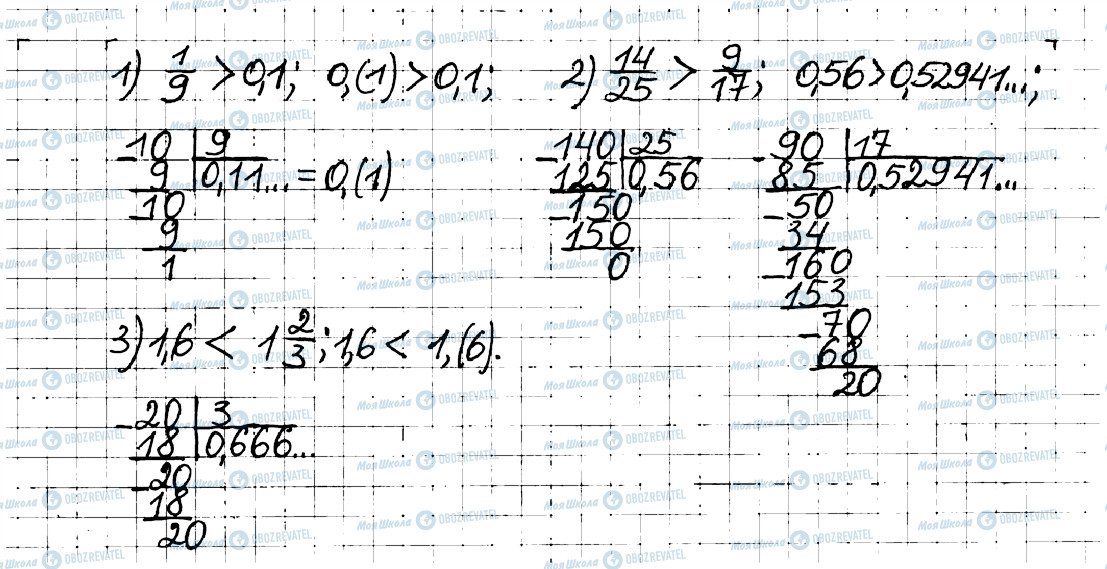 1) 1/9 > 0,1; 0,(1) > 0,1; 2) 14/25 > 9/17; 0,56 > 0,52941...;
-10 | 9
9 | 0,11... = 0,(1)
-10
9
1
-140 | 25
125 | 0,56
-150
150
0
-90 | 17
85 | 0,52941...
-50
34
-160
153
-70
68
20
3) 1,6 < 1 2/3; 1,6 < 1,(6).
-20 | 3
18 | 0,666...
-20
18
20
Моя Школа OBOZREVATEL